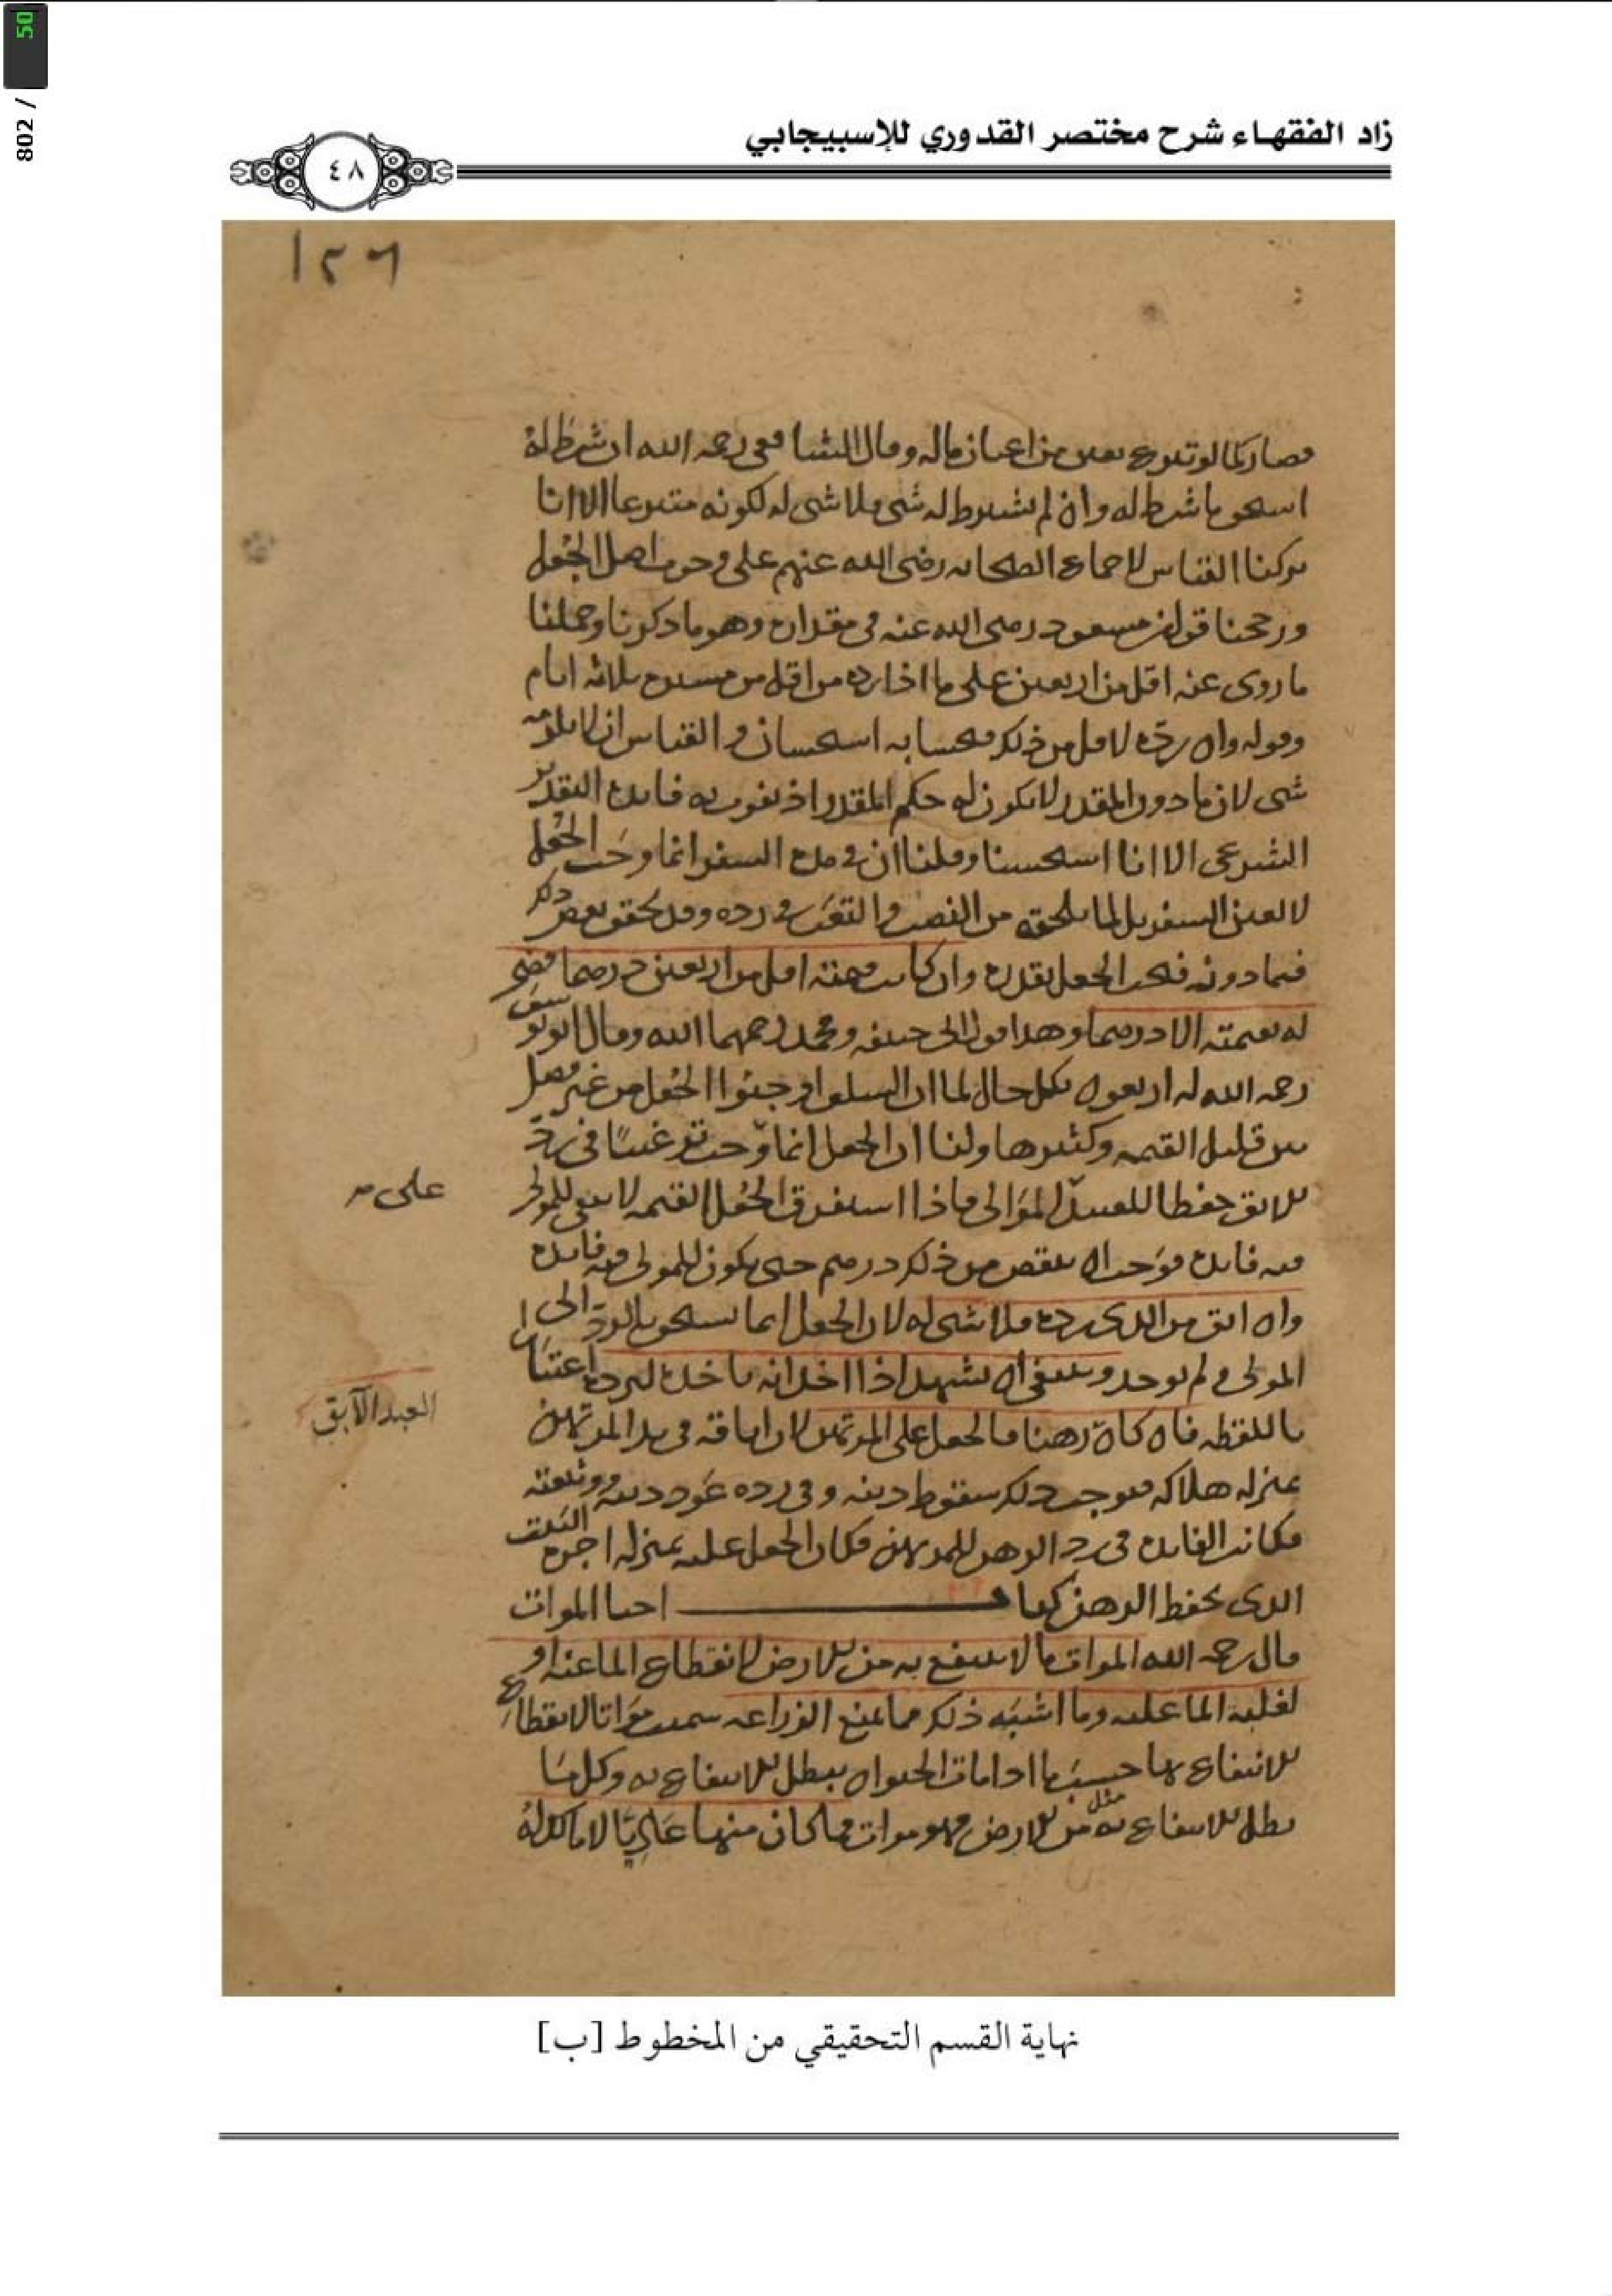 زاد الفقهاء شرح مختصر القدوري للإسبيجابي
٤٨
١٢٦
فصار كما لو تبرع بعين من اعيان ماله وقال الشافعي رحمه الله ان شرط له
استحق ما شرط له وان لم يشترط له شي فلا شي له لكونه متبرعا الا انا
تركنا القياس لاجماع الصحابه رضي الله عنهم على وجوب اصل الجُعل
ورجحنا قول ابن مسعود رضي الله عنه في مقداره وهو ما ذكرنا وحملنا
ما روي عنه اقل من اربعين على ما اذا رده من اقل من مسيره ثلاثه ايام
وقوله وان رده لاقل من ذلك فبحسابه استحسان والقياس ان لا يلزمه
شي لان ما دون المقدر لا يكون له حكم المقدر اذ تفوت به فايده التقدير
الشرعي الا انا استحسنا وقلنا ان في مده السفر انما وجَب الجُعل
لا لعين السفر بل لما يلحقه من النصب والتعَب في رده وقد تحقق بعض ذلك
فيما دونه فيجب الجعل بقدره وان كانت قيمته اقل من اربعين درهما قضي
له بقيمته الا درهما وهذا قول ابي حنيفه ومحمد رحمهما الله وقال ابو يوسف
رحمه الله له اربعون بكل حال لما ان السلف اوجبوا الجُعل من غير فصل
بين قليل القيمه وكثيرها ولنا ان الجعل انما وجب ترغيبًا في ردّ
الابق حفظا للعبيد الموَالي فاذا استغرق الجُعل القيمه لا يبقى للمولى
على
فيه فايده فوَجب ان ينقص من ذلك درهم حتى يكون للمولى فيه فايده
وان ابق من الذي رده فلا شي له لان الجعل انما يستحق بالرد الى
المولى ولم يوجد وينبغي ان يشهد اذا اخذ انه ياخذه ليرده اعتبارا
العبد الآبق
باللقطه فان كان رهنا فالجعل على المرتهن لان اباقه في يد المرتهن
بمنزله هلاكه فيوجب ذلك سقوط دينه وفي رده عَود دينه ووثيقته
فكانت الفايده في رد الرهن للمرتهن فكان الجعل عليه بمنزله اجره البيت
الذي يحفظ الرهن كتاب احيا الموات
قال رحمه الله الموات ما لا ينتفع به من الارض لانقطاع الما عنه او
لغلبه الما عليه وما اشبَه ذلك مما يمنع الزراعه سميت مَوَاتا لانقطاع
الانتفاع بها حسبَ ما اذا مات الحيوان يبطل الانتفاع به وكل ما
بطل الانتفاع به من الارض فهو موات فما كان منها عَادِيًا لا مالك لهُ
مثل
نهاية القسم التحقيقي من المخطوط [ب]
50
/ 802